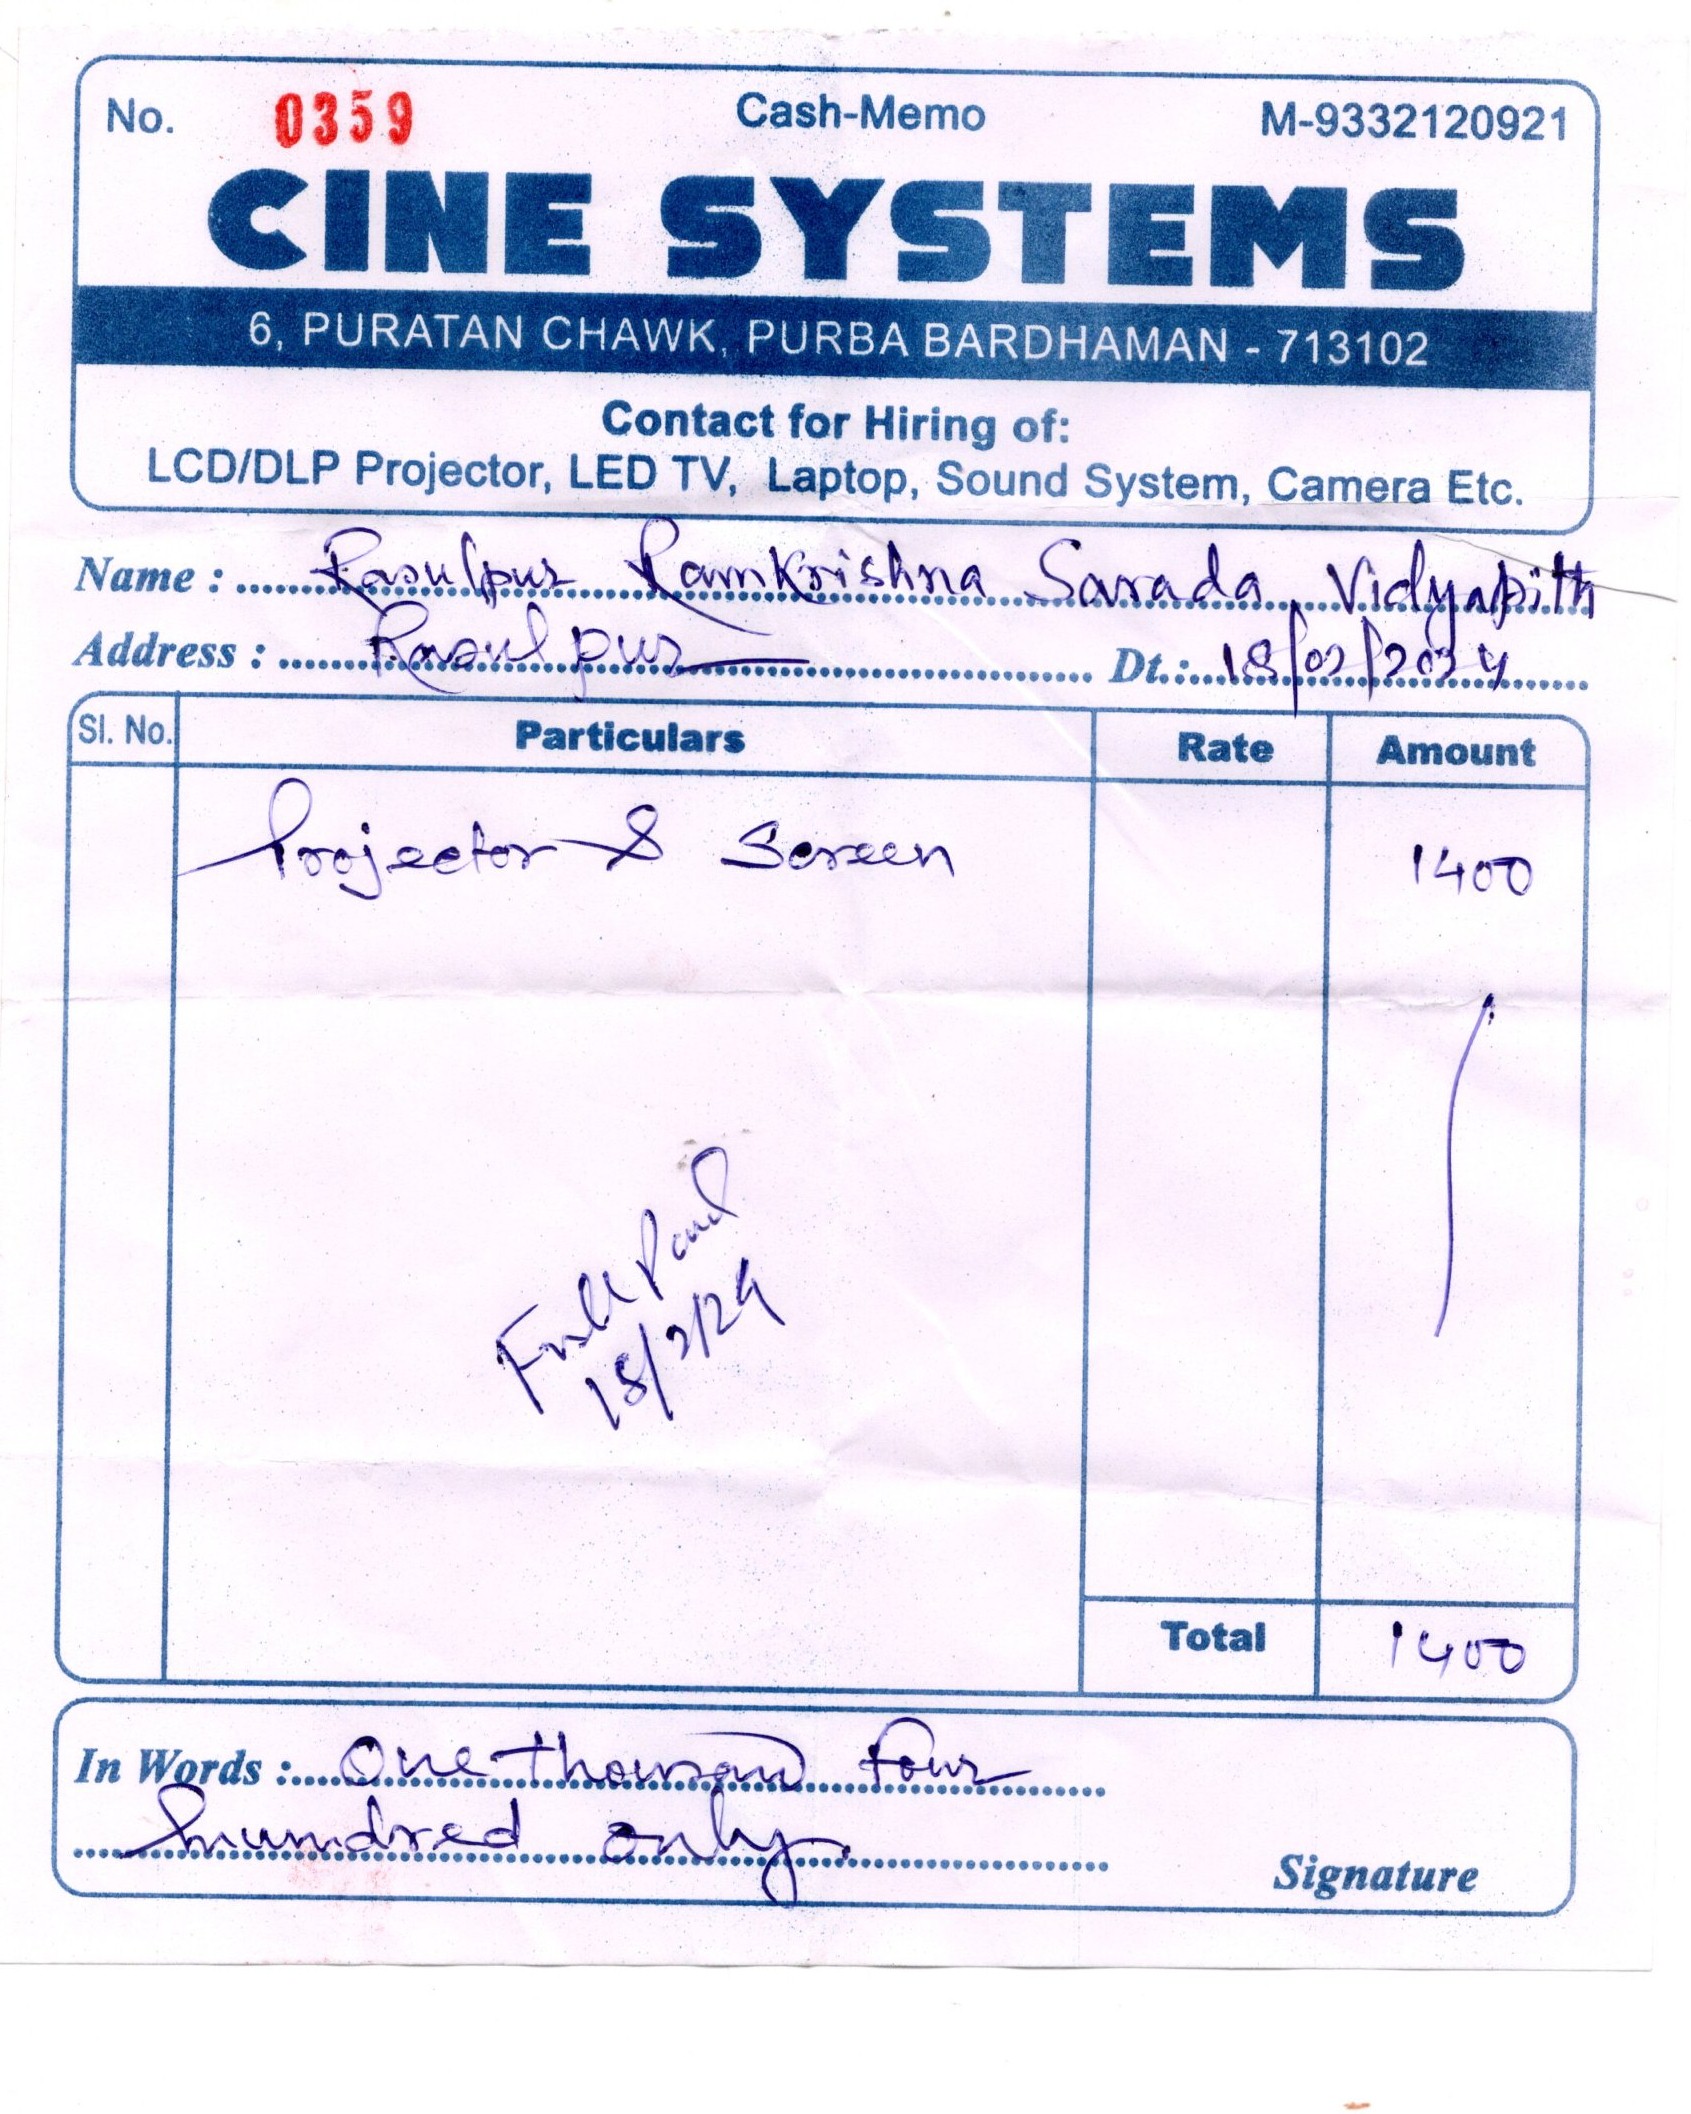 No. 0359 Cash-Memo M-9332120921
CINE SYSTEMS
6, PURATAN CHAWK, PURBA BARDHAMAN - 713102
Contact for Hiring of:
LCD/DLP Projector, LED TV, Laptop, Sound System, Camera Etc.
Name : Rasulpur Ramkrishna Sarada Vidyapith
Address : Rasulpur Dt.: 18/02/2024
Sl. No. Particulars Rate Amount
Projector & Screen 1400
Full Paid
18/2/24
Total 1400
In Words : One thousand four
hundred only.
Signature